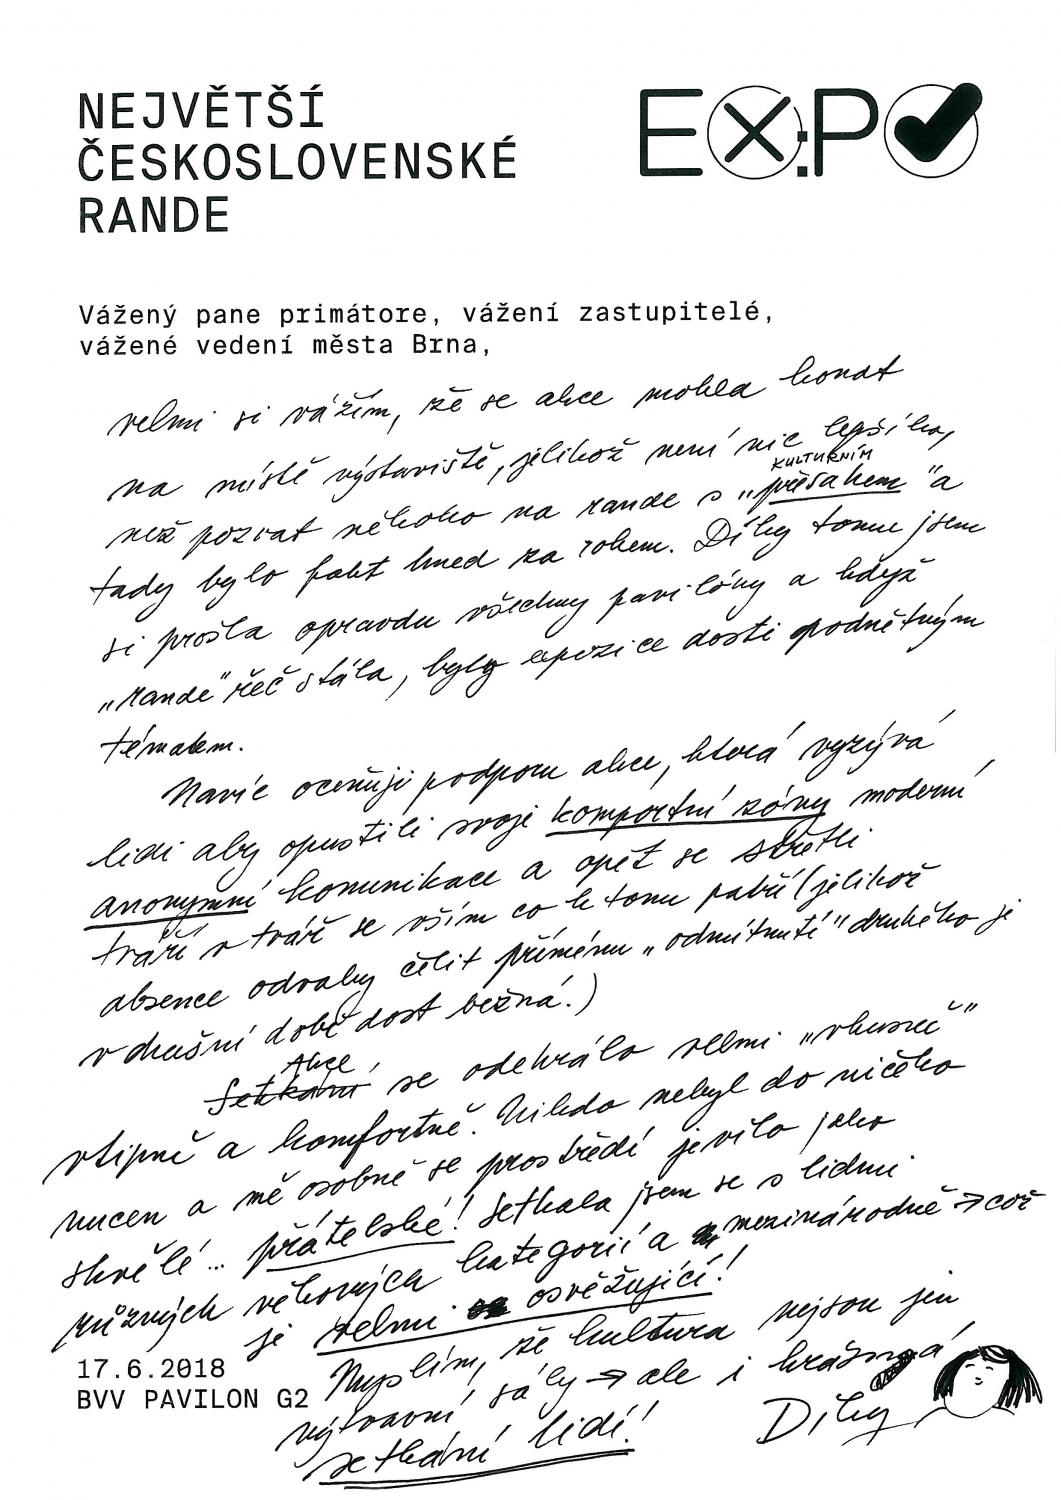 NEJVĚTŠÍ
ČESKOSLOVENSKÉ
RANDE
EX:PO
Vážený pane primátore, vážení zastupitelé,
vážené vedení města Brna,
velmi si vážím, že se akce mohla konat
na místě výstaviště, jelikož není nic lepšího,
KULTURNÍM
než pozvat někoho na rande s „přesahem" a
tady bylo fakt hned za rohem. Díky tomu jsem
si prošla opravdu všechny pavilóny a když
„rande" řeč stála, byly expozice dosti podnětným
tématem.
Navíc oceňuji podporu akce, která vyzývá
lidi aby opustili svoje komfortní zóny moderní
anonymní komunikace a opět se střetli
tváří v tvář se vším co k tomu patří (jelikož
absence odvahy čelit přímému „odmítnutí" druhého je
v dnešní době dost běžná.)
Akce
Setkání se odehrálo velmi „vkusně"
vtipně a komfortně. Nikdo nebyl do ničeho
nucen a mě osobně se prostředí jevilo jako
skvělé... přátelské! Setkala jsem se s lidmi
různých věkových kategorií a mezinárodně → což
je velmi osvěžující!
17.6.2018
BVV PAVILON G2
Myslím, že kultura nejsou jen
výtvarní sály → ale i krásná
setkání lidí!
Díky